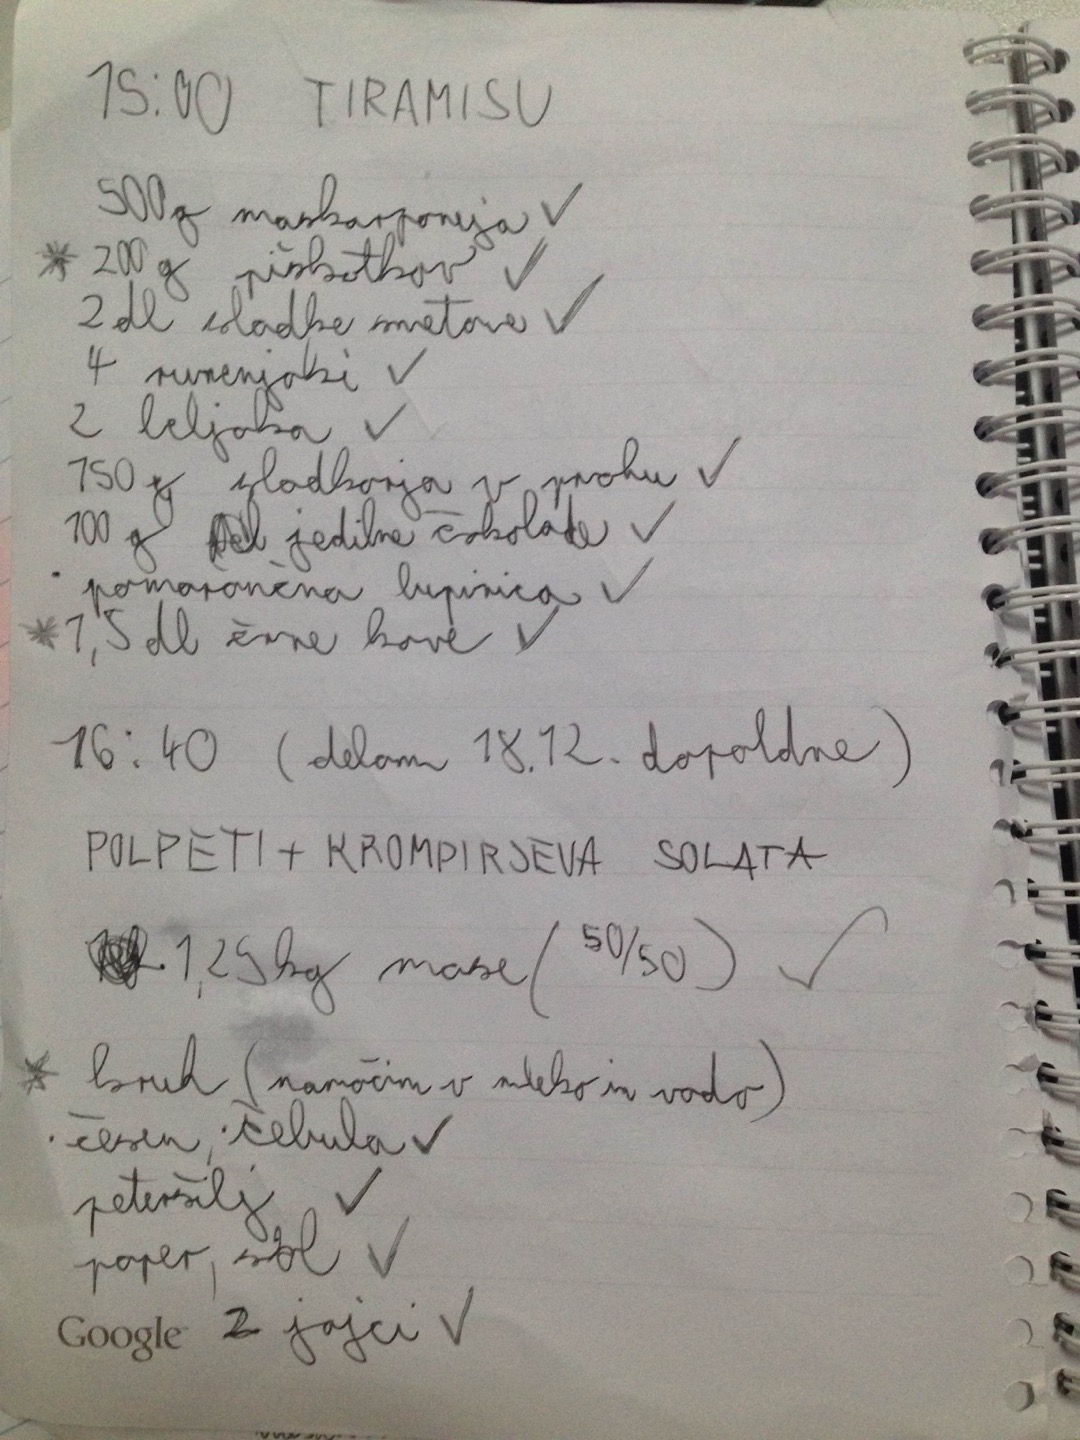 15:00 TIRAMISU
500g maskarponeja ✓
* 200 g piškotkov ✓
2 dl sladke smetane ✓
4 rumenjaki ✓
2 beljaka ✓
150 g sladkorja v prahu ✓
100 g jedilne čokolade ✓
· pomarančna lupinica ✓
* 1,5 dl črne kave ✓
16:40 (delam 18.12. dopoldne)
POLPETI + KROMPIRJEVA SOLATA
1,25 kg mase (50/50) ✓
* kruh (namočim v mleko in vodo)
· česen, · čebula ✓
peteršilj ✓
poper, sol ✓
Google 2 jajci ✓